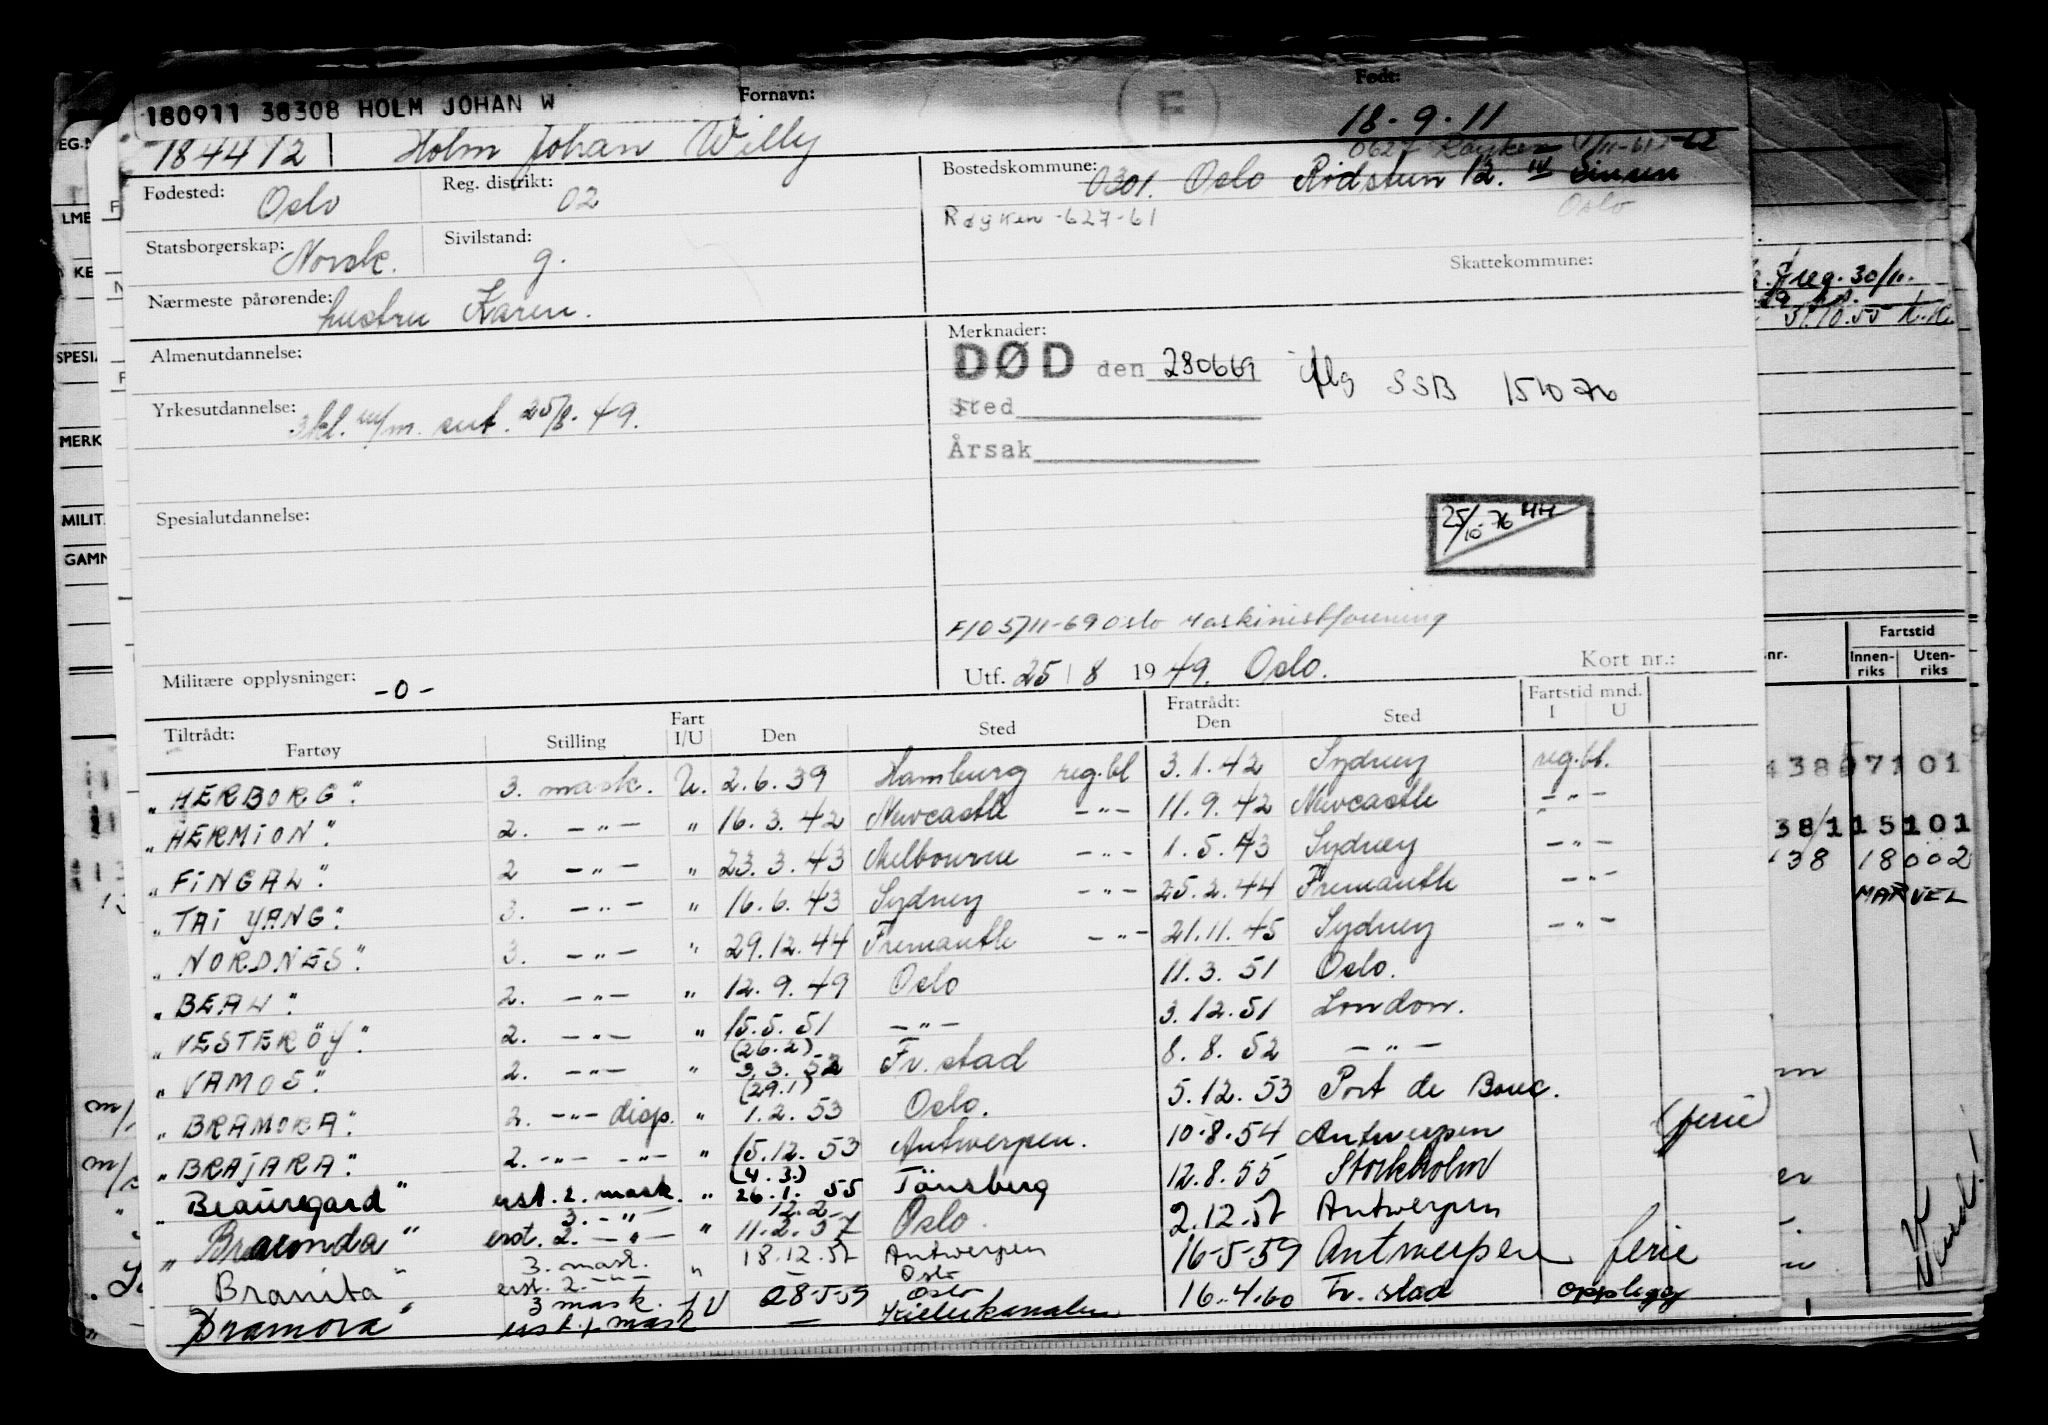 180911 38308 HOLM JOHAN W
Fornavn:
F
Født:
18-9-11
1844412
Holm Johan Willy
0627 Røyken
Fødested: Oslo
Reg. distrikt: 02
Bostedskommune: 0301. Oslo Rødstun 12. IV Sinsen
Oslo
Røyken -627-61
Statsborgerskap: Norsk.
Sivilstand: g.
Skattekommune:
Nærmeste pårørende: hustru Karen.
Almenutdannelse:
Merknader:
DØD den 280669 iflg SSB 151076
Sted
Årsak
Yrkesutdannelse: 3 kl. m/m. sert. 25/8-49.
25/10-76 HH
Spesialutdannelse:
F105/11-69 Oslo Maskinistforening
Militære opplysninger: -0-
Utf. 25/8 1949. Oslo.
Kort nr.:
Tiltrådt:
Fartøy Stilling Fart I/U Den Sted Fratrådt: Den Sted Fartstid mnd. I U
"HERBORG". 3. mask. U. 2.6.39 Hamburg reg.bl 3.1.42 Sydney reg.bl.
"HERMION". 2. -"- " 16.3.42 Newcastle -"- 11.9.42 Newcastle -"-
"FINGAL". 2 -"- " 23.3.43 Melbourne -"- 1.5.43 Sydney -"-
"TAI YANG". 3. -"- " 16.6.43 Sydney -"- 25.2.44 Fremantle -"-
"NORDNES". 3. -"- " 29.12.44 Fremantle -"- 21.11.45 Sydney -"-
"BEAU". 2. -"- " 12.9.49 Oslo 11.3.51 Oslo.
"VESTERÖY". 2. -"- " 15.5.51 -"- 3.12.51 London.
"VAMOS". 2. -"- " (26.2) 3.3.52 Fr.stad 8.8.52 -"-
"BRAMORA". 2. -"- disp. " (29.1) 1.2.53 Oslo. 5.12.53 Port de Bouc.
"BRAJARA". 2. -"- -"- " 15.12.53 Antwerpen. 10-8-54 Antwerpen (ferie)
"Beauregard" erst. 2. mask. " (4.3.) 26.1.55 Tönsberg 12.8.55 Stockholm
"Braconda" 3. -"- erst. 2. -"- " 12.2- 11-2.57 Oslo. 2.12.57 Antwerpen
Branita" 3. mask. erst. 2. -"- " 18.12.57 Antwerpen Oslo 16-5-59 Antwerpen ferie
Bramora" 3 mask. erst. 1. mask U 28-5-59 Oslo Kielerkanalen 16.4.60 Fr.stad opplegg
EG.N
LME
KE
SPESIA
MERK
MILIT
GAMN
reg. 30/11.
31.10.55
Fartstid
nr.
Innen-riks
Uten-riks
43807101
38/115101
138 18002
MARVEL